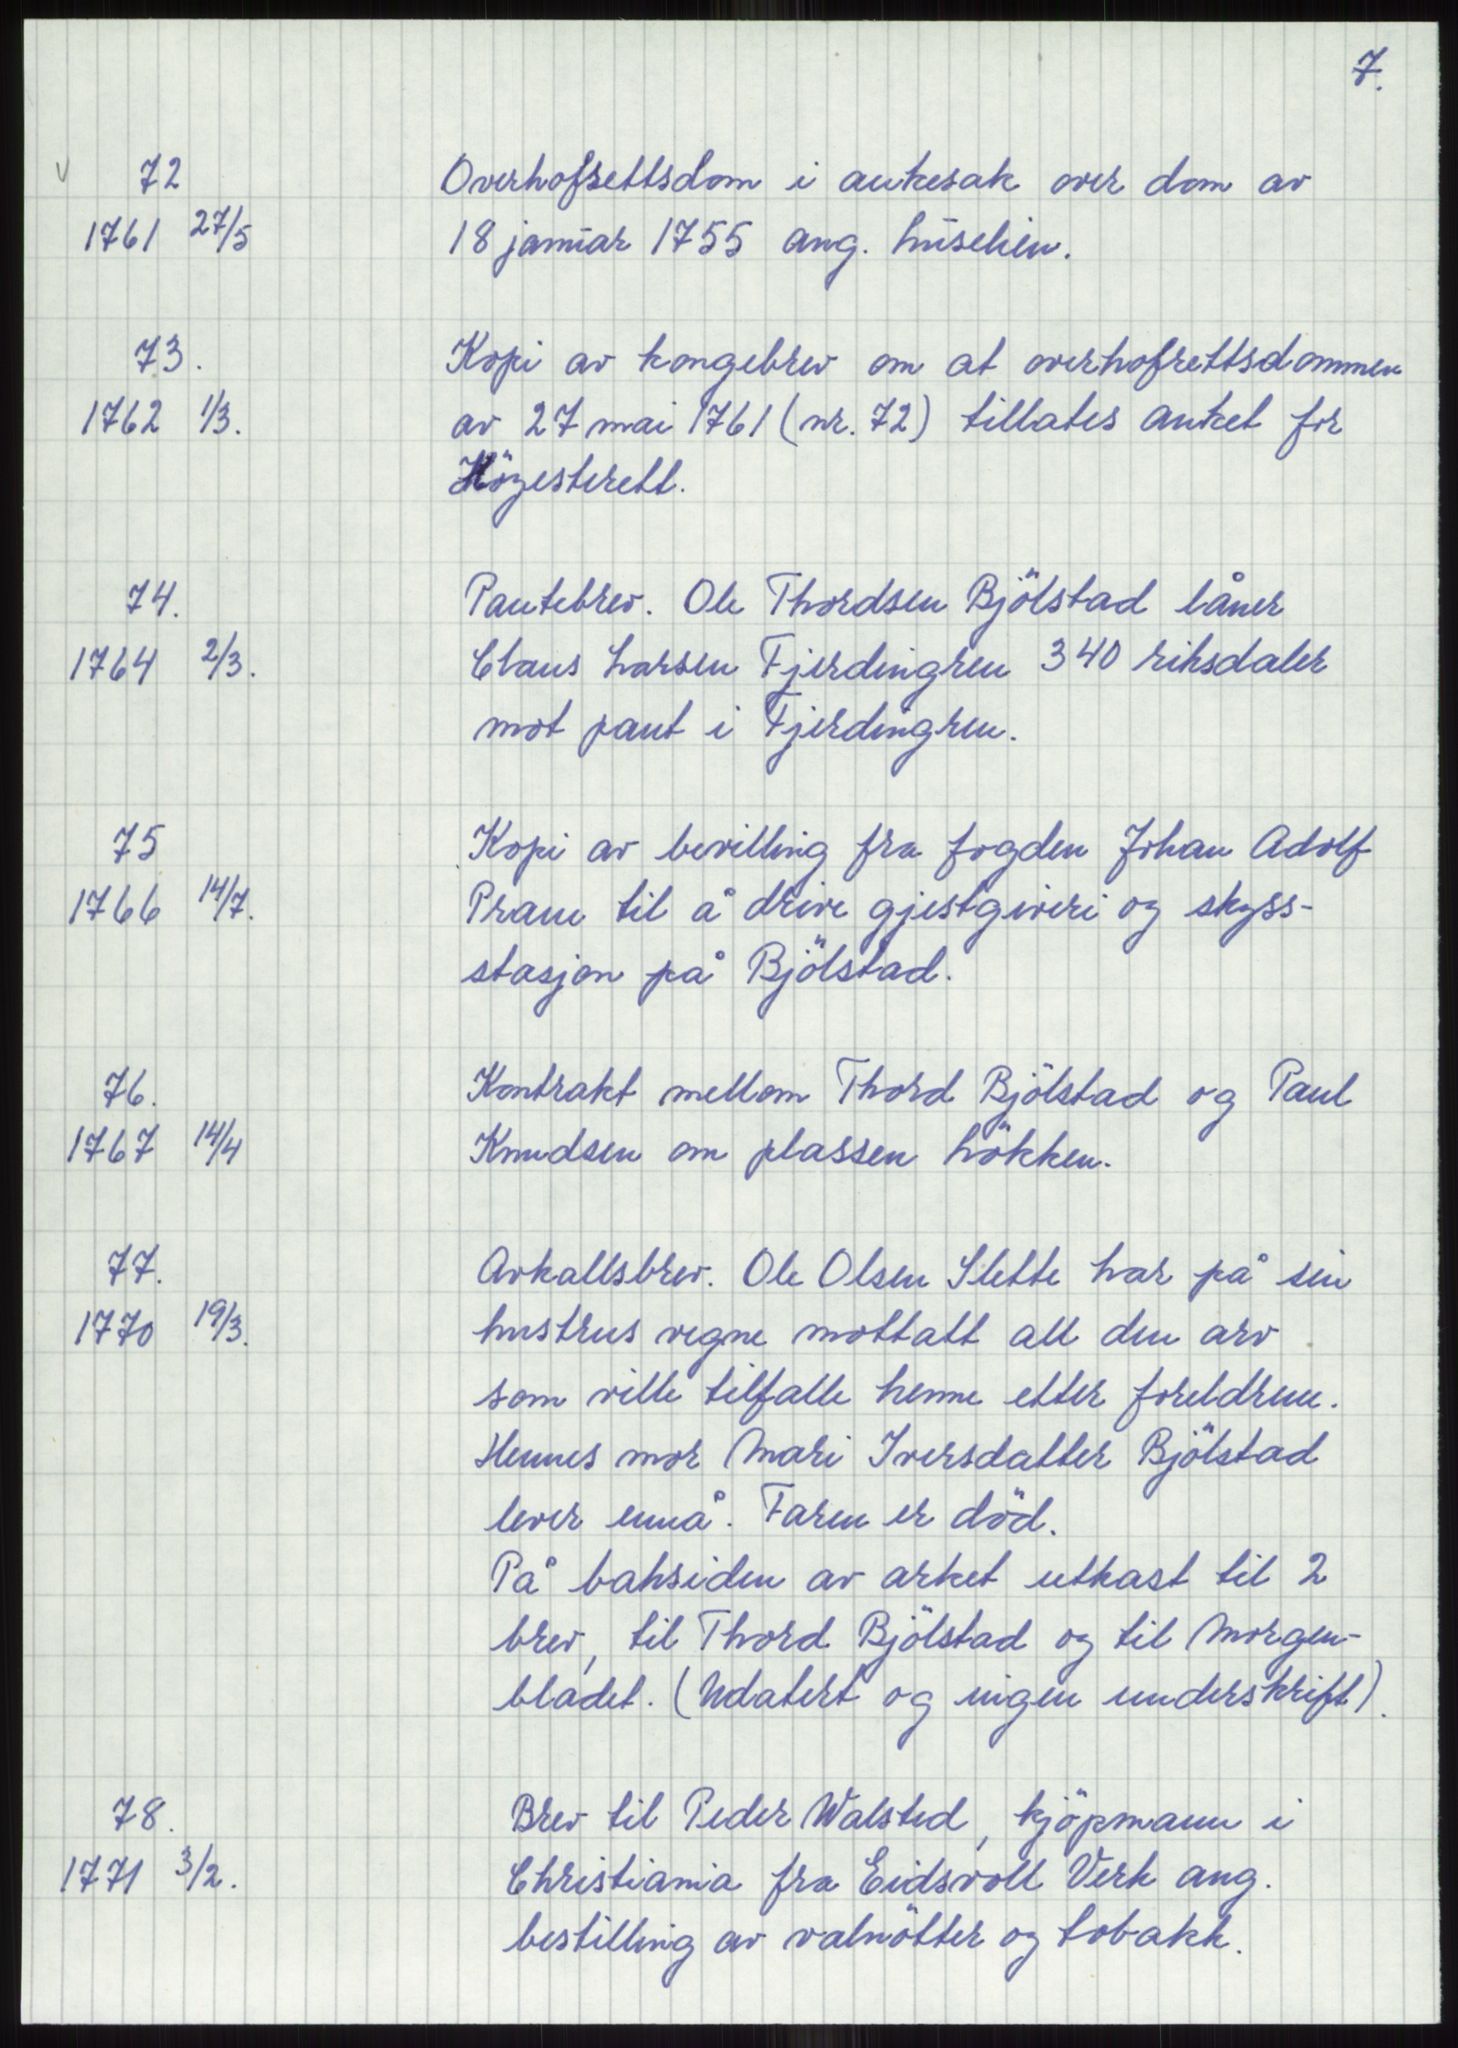 7.
v 72 Overhofsettsdom i ankesak over dom av
1761 27/5 18 januar 1755 ang. huselien.
73. Kopi av kongebrev om at overhofrettsdommen
1762 1/3. av 27 mai 1761 (nr. 72) tillates anket for
Högesterett.
74. Pantebrev. Ole Thordsen Bjölstad låner
1764 2/3. Claus Larsen Fjerdingren 340 riksdaler
mot pant i Fjerdingren.
75 Kopi av bevilling fra fogden Johan Adolf
1766 14/7. Pram til å drive gjestgiveri og skyss-
stasjon på Bjölstad.
76. Kontrakt mellom Thord Bjölstad og Paul
1767 14/4 Knudsen om plassen Lökken.
77. Avkallsbrev. Ole Olsen Slette har på sin
1770 19/3. hustrus vegne mottatt all den arv
som ville tilfalle henne etter foreldrene.
Hennes mor Mari Iversdatter Bjölstad
lever ennå. Faren er död.
På baksiden av arket utkast til 2
brev, til Thord Bjölstad og til Morgen-
bladet. (Udatert og ingen underskrift).
78. Brev til Peder Walsted, kjöpmann i
1771 3/2. Christiania fra Eidsvoll Verk ang.
bestilling av valnötter og tobakk.